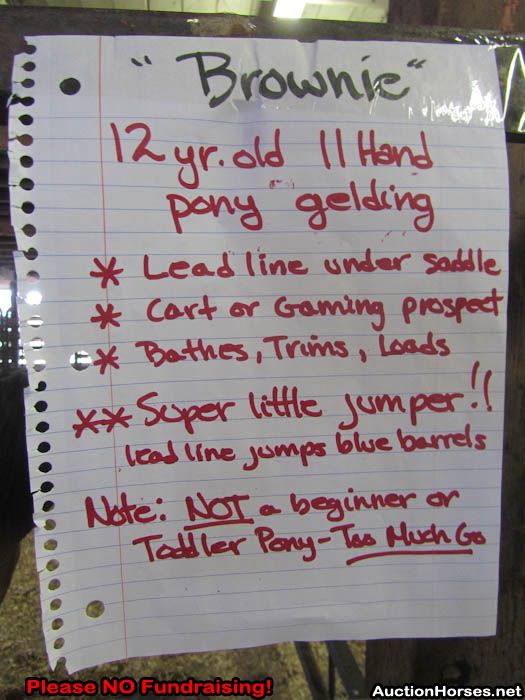 "Brownie"
12 yr. old 11 Hand
pony gelding
* Lead line under saddle
* Cart or Gaming prospect
* Bathes, Trims, Loads
** Super little jumper!!
lead line jumps blue barrels
Note: NOT a beginner or
Toddler Pony - Too Much Go
Please NO Fundraising!
AuctionHorses.net